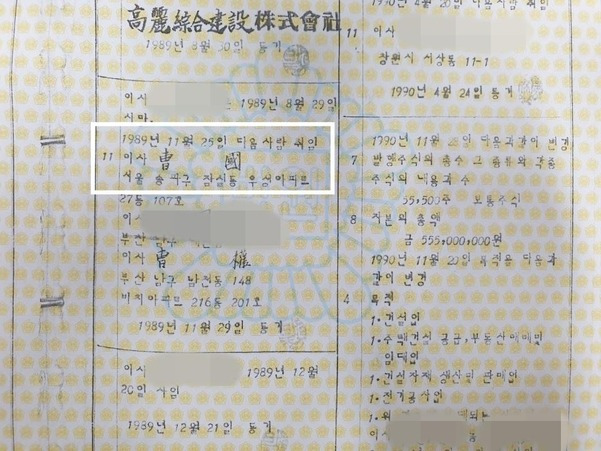 高麗綜合建設株式會社
1989년 8월 30일 등기
이사 1989년 8월 29일
사망.
1989년 11월 25일 다음사람 취임
11 이사 曺 國
서울 송파구 잠실동 우성아파트
27동 107호
이사
부산 남구
이사 曺 權
부산 남구 남천동 148
비치아파트 216동 201호
1989년 11월 29일 등기
이사 1989년 12월
20일 사임
1989년 12월 21일 등기
1990년 4월 20일 다음사람 취임
11 이사
창원시 서상동 11-1
1990년 4월 24일 등기
1990년 11월 일 다음과같이 변경
7 발행주식의 총수 그 종류와 각종
주식의 내용과 수
55,500주 보통주식
8 자본의 총액
금 555,000,000원
1990년 11월 일 목적을 다음과
같이 변경
4 목적
1.건설업
1.주택건설 공급,부동산매매및
임대업
1.건설자재 생산및 판매업
1.전기공사업
1.
이사